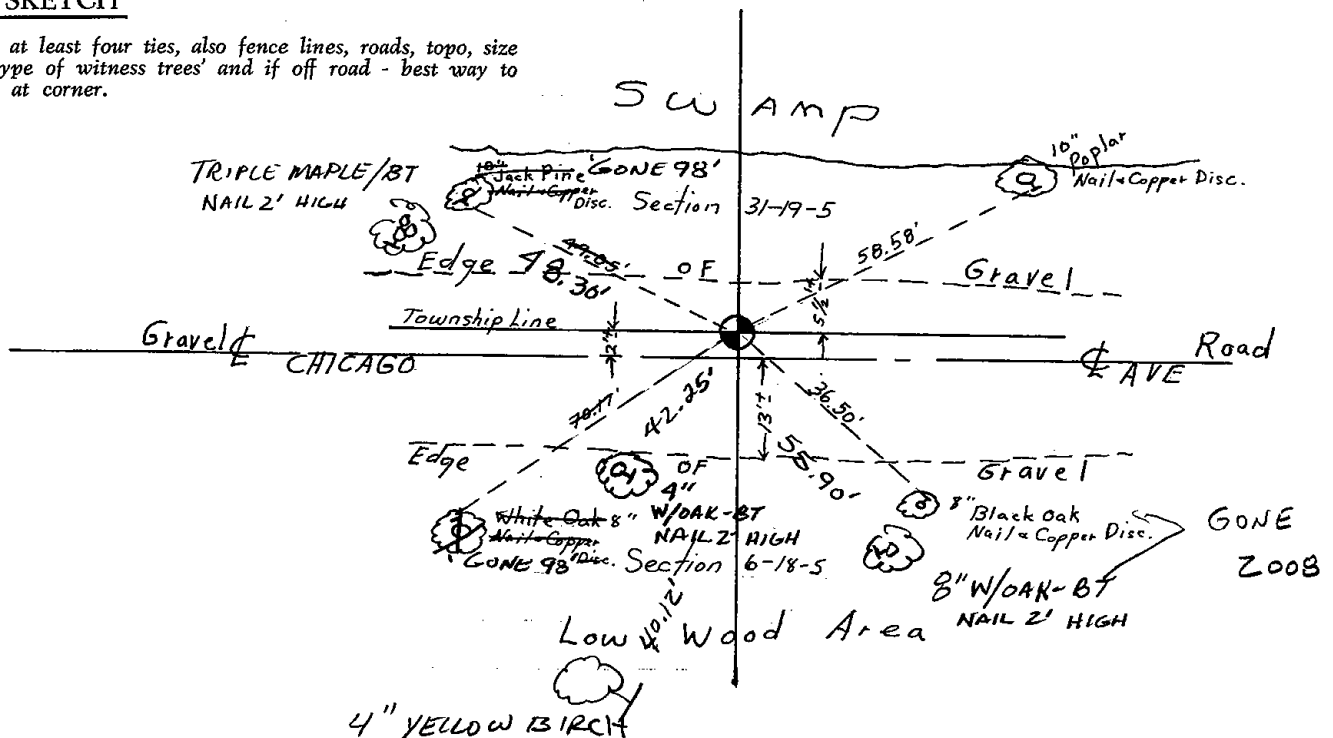 SKETCH
at least four ties, also fence lines, roads, topo, size
ype of witness trees' and if off road - best way to
at corner.
SWAMP
TRIPLE MAPLE/BT
NAIL 2' HIGH
10"
Jack Pine 'GONE 98'
Nail & Copper
Disc.
10"
Poplar
Nail & Copper Disc.
Section 31-19-5
49.05'
48.30'
58.58'
Edge OF Gravel
5 1/2'±
Township Line
Gravel ℄ CHICAGO ℄ AVE Road
2'±
70.17'
42.25'
13'±
36.50'
55.90'
Edge OF Gravel
4"
W/OAK-BT
NAIL 2' HIGH
White Oak 8"
Nail & Copper
Disc.
'GONE 98'
Section 6-18-5
8"
Black Oak
Nail & Copper Disc.
8" W/OAK-BT
NAIL 2' HIGH
GONE
2008
40.12'
Low Wood Area
4" YELLOW BIRCH